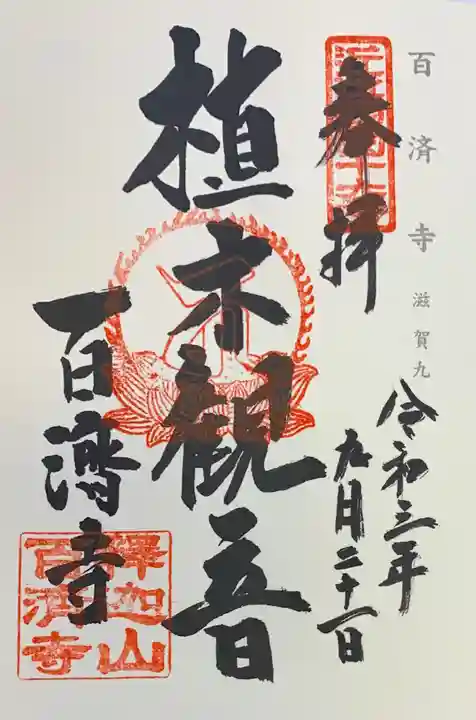 百済寺 滋賀九
奉拝
令和三年
九月二十一日
植木観音
百濟寺
釋迦山
百濟寺